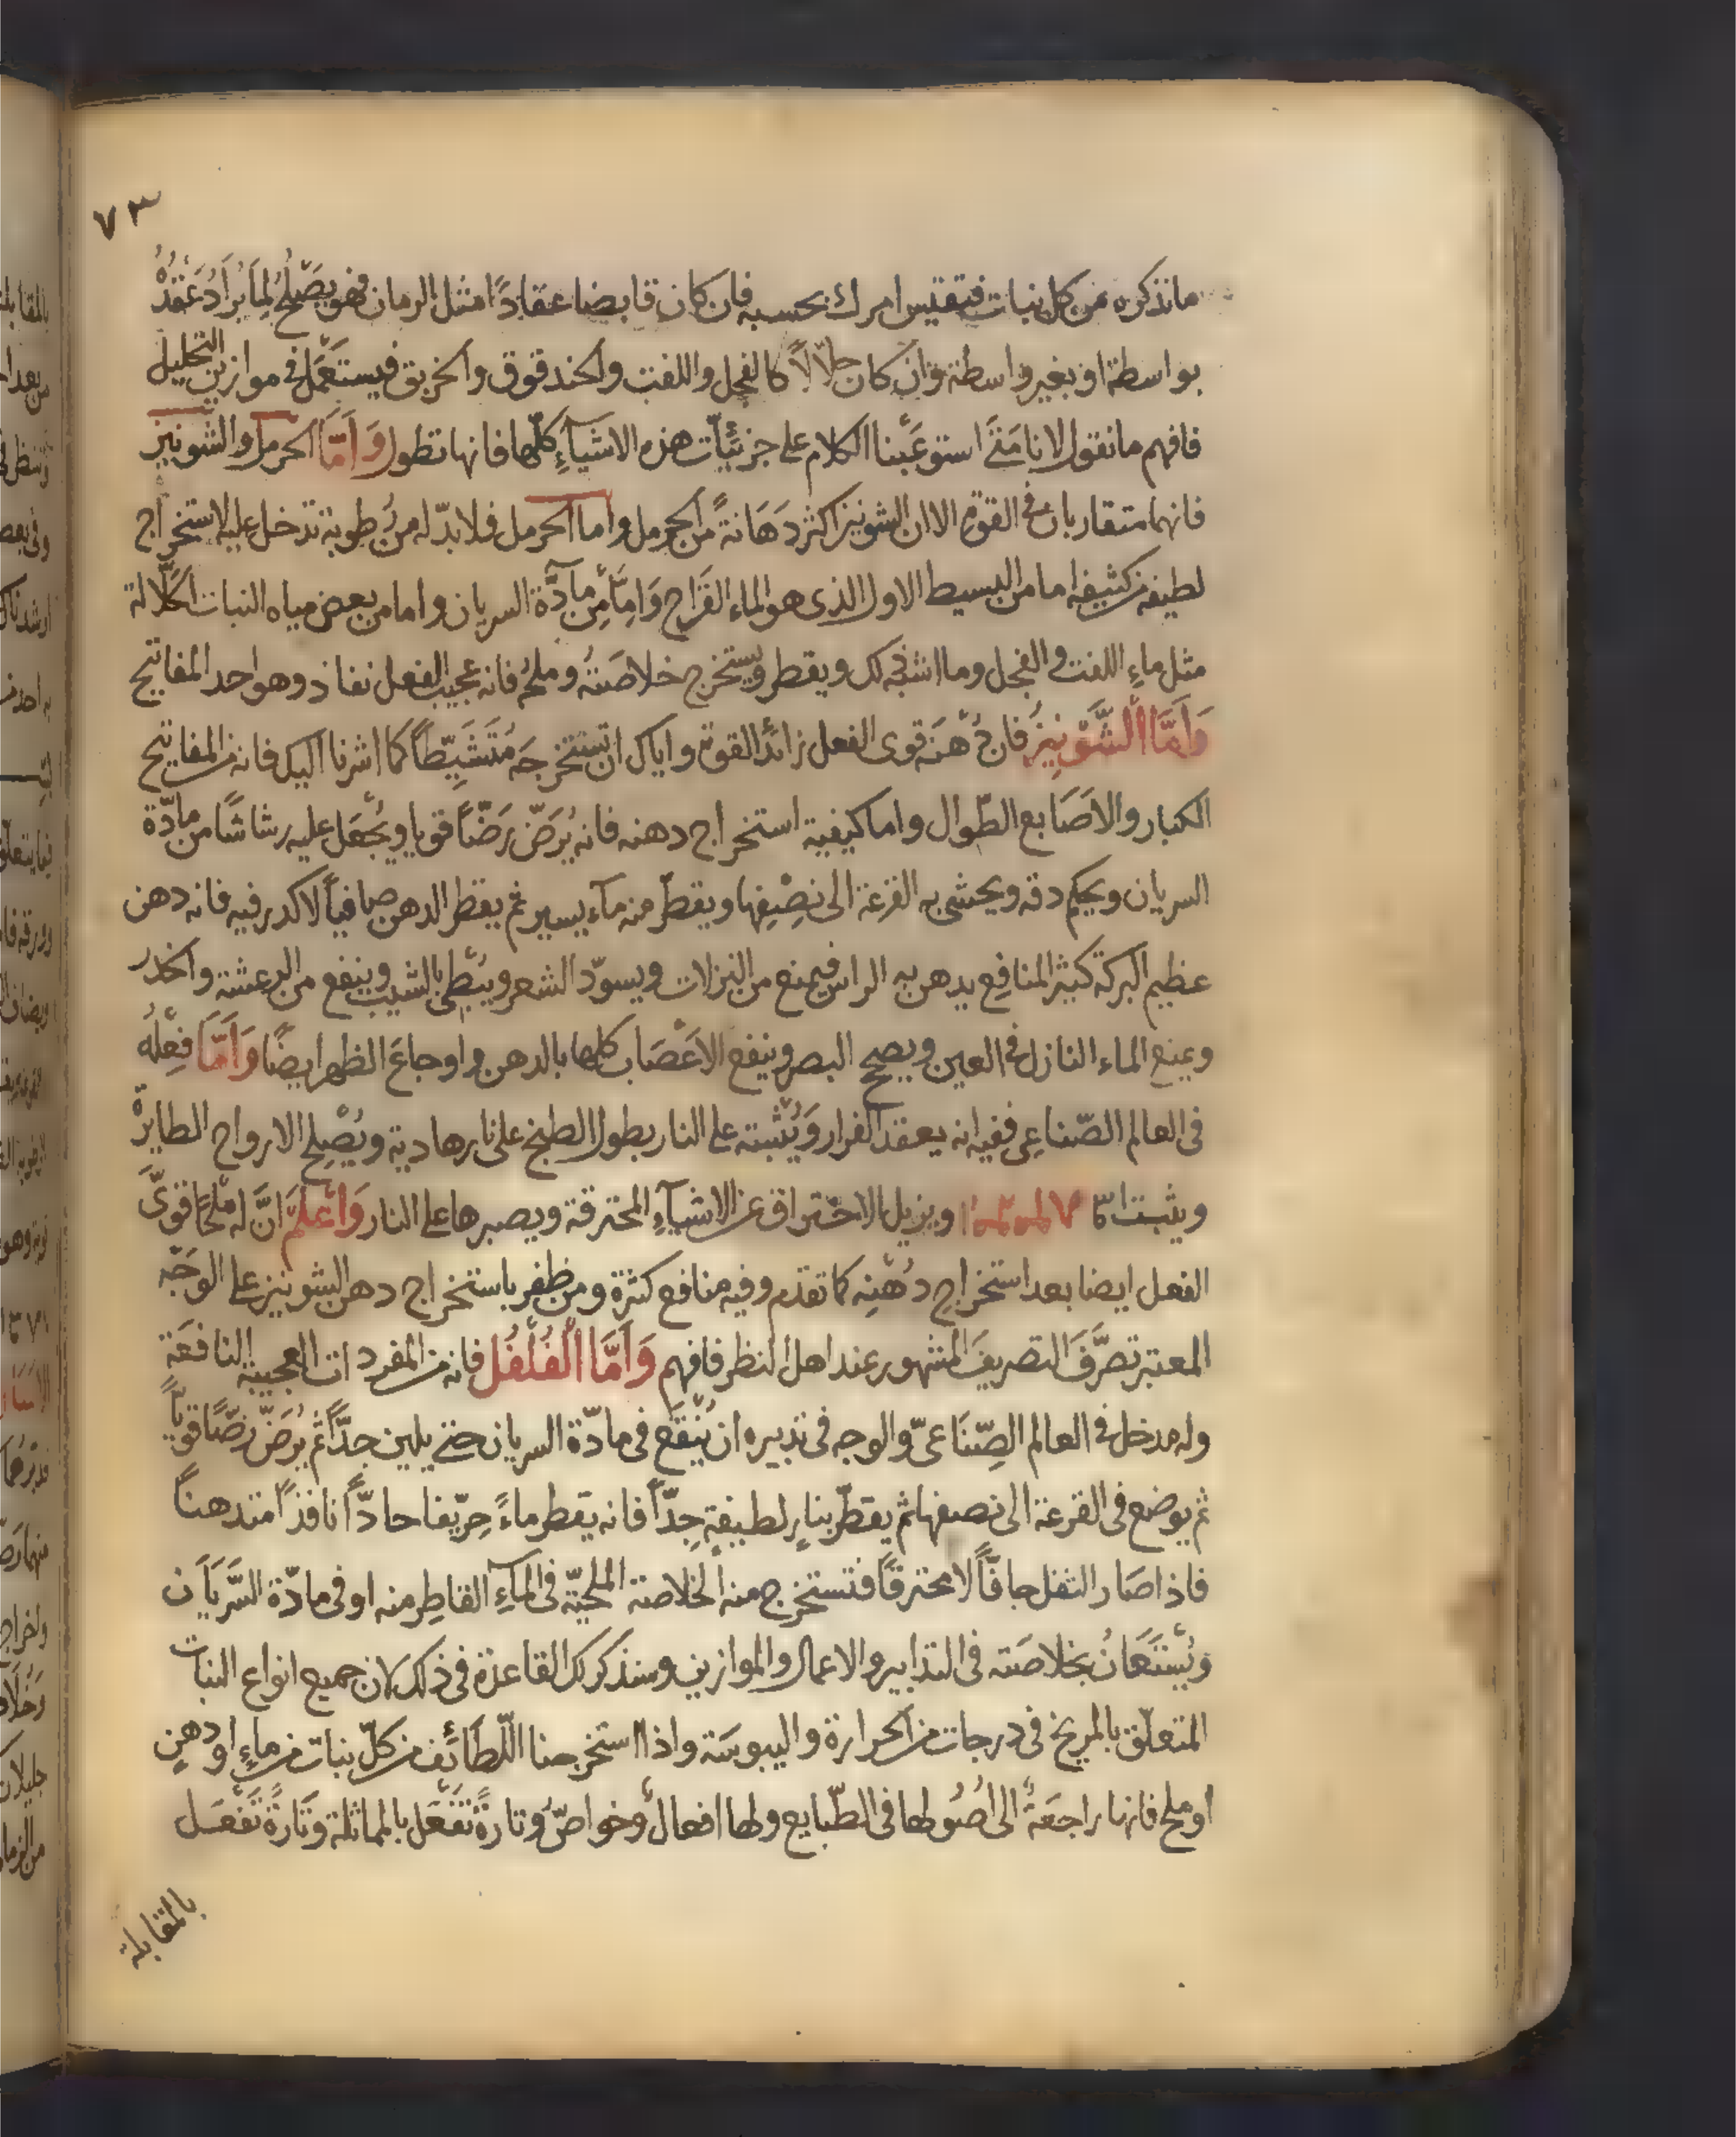 ٧٣
ما نذكره من كل نبات فتقيس امرك بحسبه فان كان قابضا عقادًا مثل الرمان فهو يصْلحُ لِمَا يُرَادُ عَقْدُهُ
بواسطة او بغير واسطة وان كان حلّالاً كالفجل واللفت والحندقوق والخربق فيستعمَل في موازين التحليل
فافهم ما نقول لانا مَتَى استوعَبْنا الكلام على جزئيَّات هذه الاشيآءِ كلّها فانها تطول وَاَمَّا الحرمل والشونيز
فانهما متقاربان في القوة الا ان الشونيز اكثر دَهَانَةً من الحرمل واما الحرمل فلا بدّ له من رُطوبة تدخل عليه لاستخراج
لطيفه من كثيفه اما من البسيط الاول الذى هو الماء القَراح وَاِمَّا مِن مآدَّة السريان واما من بعض مياه النبات الحَلّالة
مثل ماءِ اللفت والفجل وما اشبه ذلك ويقطر ويستخرج خلاصَتُه وملحُه فانه عجيب الفعل نفاذ وهو احد المفاتيح
وَاَمَّا الشَّوْنِيزُ فان دُهْنَه قوى الفعل زائد القوة واياك ان تستخرجَه مُتَشَيِّطاً كما اشرنا اليك فانه من المفاتيح
الكبار والاَصَابع الطّوال واما كيفية استخراج دهنه فانه يُرَضّ رَضّاً قويا ويُجْعَل عليه رشاشًا من مادّة
السريان ويحكم دقه ويحشى به القرعة الى نصْفِها ويقطّر منه مآء يسير ثم يقطر الدهن صافياً لا كدر فيه فانه دهن
عظيم البركة كثير المنافع يدهن به الراس فيمنع من النزلات ويسوّد الشعر ويبْطى بالشيب وينفع من الرعشة والخدر
ويمنع الماء النازل في العين ويصحح البصر وينفع الاَعْصَاب كلها بالدهن واوجاعَ الظهر ايضًا وَاَمَّا فِعْلُه
فى العالم الصّناعِى ففيه انه يعقد الفرار وَيُثبته على النار بطول الطبخ على نار هادية ويُصْلح الارواح الطايرة
ويثبت ويزيل الاحتراق عن الاشيآءِ المحترقة ويصبرها على النار وَاعْلَمْ انَّ له مِلْحًا قوىَّ
الفعل ايضا بعد استخراج دُهْنِه كما تقدم وفيه منافع كثرة ومن ظفر باستخراج دهن الشونيز على الوَجْه
المعتبر تصَرَّفَ التصريفَ المشهور عند اهل النظر فافهم وَاَمَّا الْفُلْفُل فانه من المفردات العجيبة النافعَة
وله مدخل في العالم الصِّنَاعىّ والوجه فى تدبيره ان يُنْقَع فى مادّة السريان حتى يلين جدّاً ثم يُرَضّ رَضًّا قويّاً
ثم يوضع فى القرعة الى نصفها ثم يقطّر بنارٍ لطيفةٍ جِدّاً فانه يقطر ماءً حِرّيفا حادّاً نافذاً متدهناً
فاذا صَار الثفل جافّاً لا محترقًا فتستخرج منه الخلاصة الملحيّة فى المآءِ القاطِر منه او فى مادّة السَّرَيَان
وَيُسْتَعَانُ بخلاصَته فى التدابير والاعمال والموازين وسنذكر لك القاعدة فى ذلك لان جميع انواع النبات
المتعلّق بالمريخ فى درجات من الحرارة واليبوسَة واذا استخرجنا اللّطائف من كلّ نبات من ماءٍ او دهنٍ
او ملح فانها راجعَةٌ الى اُصُولها فى الطّبايع ولها افعالٌ وخواصّ وتارةً تَفْعَل بالمماثلة وَتَارةً تَفْعَل
بالمقابلة